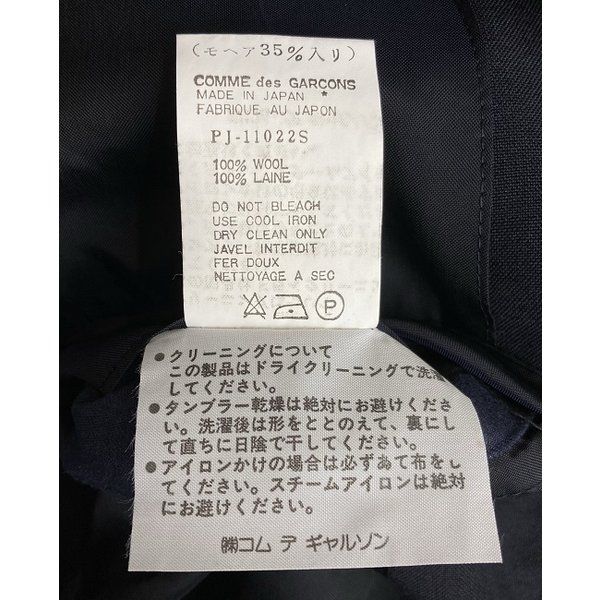 (モヘア35%入り)
COMME des GARCONS
MADE IN JAPAN ★
FABRIQUE AU JAPON
PJ-11022S
100% WOOL
100% LAINE
DO NOT BLEACH
USE COOL IRON
DRY CLEAN ONLY
JAVEL INTERDIT
FER DOUX
NETTOYAGE A SEC
P
●クリーニングについて
この製品はドライクリーニングで洗濯
してください。
●タンブラー乾燥は絶対にお避けくださ
い。洗濯後は形をととのえて、裏にし
て直ちに日陰で干してください。
●アイロンかけの場合は必ずあて布をし
てください。スチームアイロンは絶対
にお避けください。
㈱コム デ ギャルソン